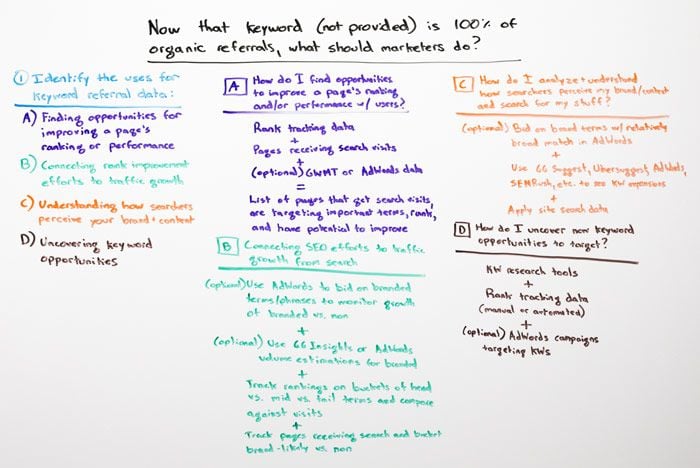 Now that keyword (not provided) is 100% of
organic referrals, what should marketers do?
① Identify the uses for
keyword referral data:
A) Finding opportunities for
improving a page's
ranking or performance
B) Connecting rank improvement
efforts to traffic growth
C) Understanding how searchers
perceive your brand + content
D) Uncovering keyword
opportunities
A How do I find opportunities
to improve a page's ranking
and/or performance w/ users?
Rank tracking data
+
Pages receiving search visits
+
(optional) GWMT or AdWords data
=
List of pages that get search visits,
are targeting important terms, rank,
and have potential to improve
B Connecting SEO efforts to traffic
growth from search
(optional) Use AdWords to bid on branded
terms/phrases to monitor growth
of branded vs. non
+
(optional) Use GG Insights or AdWords
volume estimations for branded
+
Track rankings on buckets of head
vs. mid vs. tail terms and compare
against visits
+
Track pages receiving search and bucket
brand-likely vs. non
C How do I analyze + understand
how searchers perceive my brand/content
and search for my stuff?
(optional) Bid on brand terms w/ relatively
broad match in AdWords
+
Use GG Suggest, Ubersuggest, AdWords,
SEMRush, etc. to see KW expansions
+
Apply site search data
D How do I uncover new keyword
opportunities to target?
KW research tools
+
Rank tracking data
(manual or automated)
+
(optional) AdWords campaigns
targeting KWs